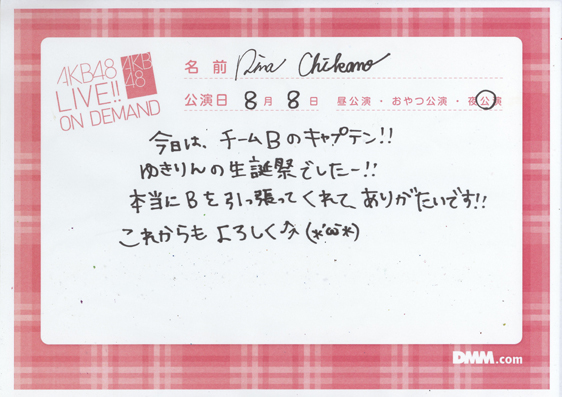 AKB48
LIVE!!
ON DEMAND
AKB
48
名前 Rina Chikano
公演日 8月8日 昼公演・おやつ公演・夜公演
今日は、チームBのキャプテン!!
ゆきりんの生誕祭でしたー!!
本当にBを引っ張ってくれてありがたいです!!
これからもよろしく (*'ω'*)
DMM.com